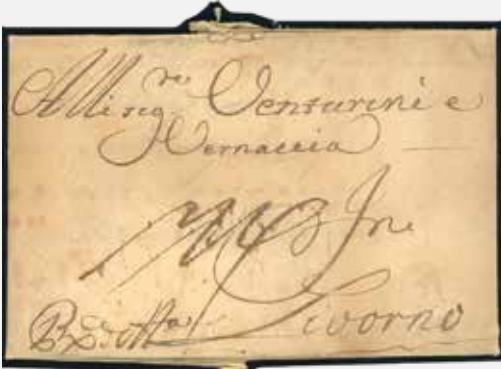 Alli sig.ri Venturini e
Vernaccia
In
Livorno